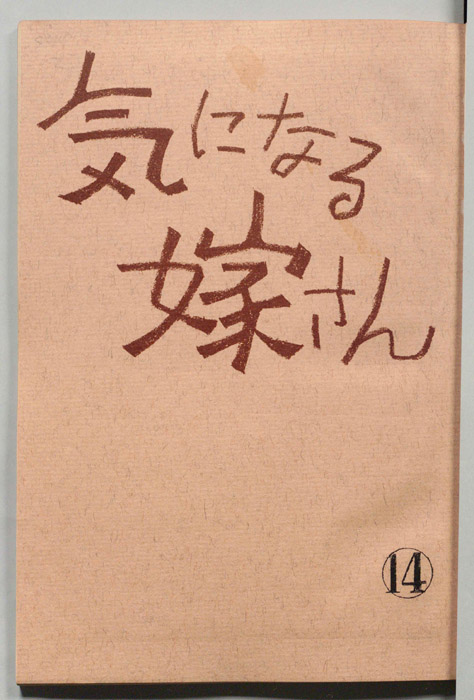 気になる
嫁さん
14